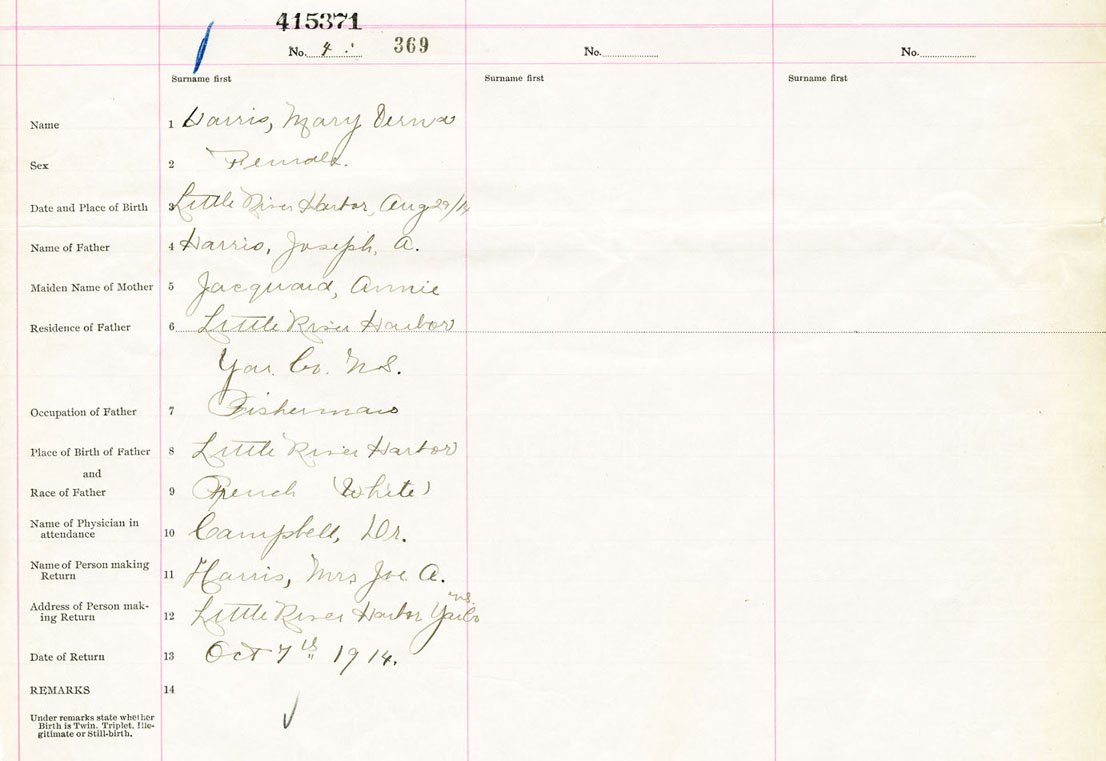 415371
No. 4 369 No. No.
Surname first Surname first Surname first
Name 1 Harris, Mary Derna
Sex 2 Female.
Date and Place of Birth 3 Little River Harbor, Aug 29/14
Name of Father 4 Harris, Joseph, A.
Maiden Name of Mother 5 Jacquard, Annie
Residence of Father 6 Little River Harbor
Yar. Co. N.S.
Occupation of Father 7 Fisherman
Place of Birth of Father 8 Little River Harbor
and
Race of Father 9 French (White)
Name of Physician in
attendance 10 Campbell, Dr.
Name of Person making
Return 11 Harris, Mrs Joe A.
N.S.
Address of Person mak-
ing Return 12 Little River Harbor Yar Co
Date of Return 13 Oct 7th 1914.
REMARKS 14
Under remarks state whether
Birth is Twin, Triplet, Ille-
gitimate or Still-birth.